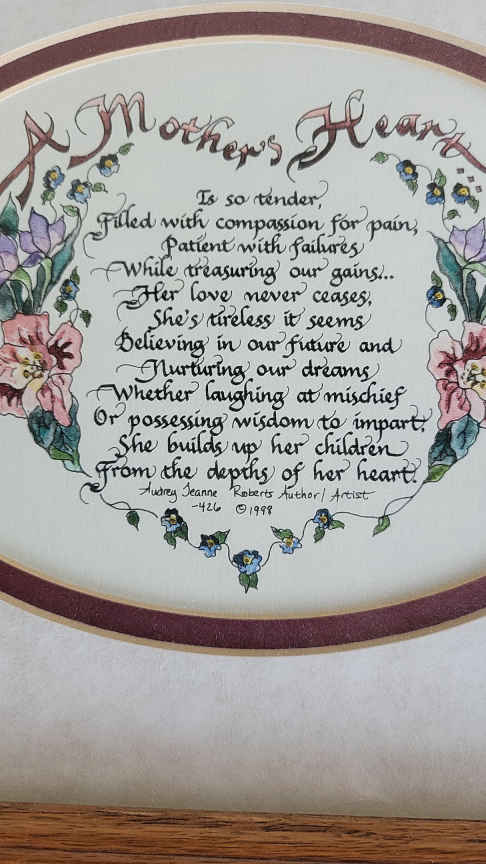 A Mother's Heart
Is so tender,
Filled with compassion for pain,
Patient with failures
While treasuring our gains...
Her love never ceases,
She's tireless it seems
Believing in our future and
Nurturing our dreams
Whether laughing at mischief
Or possessing wisdom to impart,
She builds up her children
From the depths of her heart.
Audrey Jeanne Roberts Author/Artist
-426 ©1998